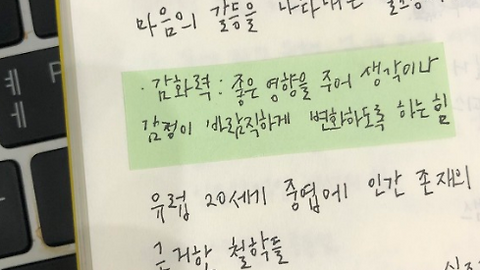 마음의 갈등을 나타내는
· 감화력 : 좋은 영향을 주어 생각이나
감정이 바람직하게 변화하도록 하는 힘
유럽 20세기 중엽에 인간 존재의
철학들